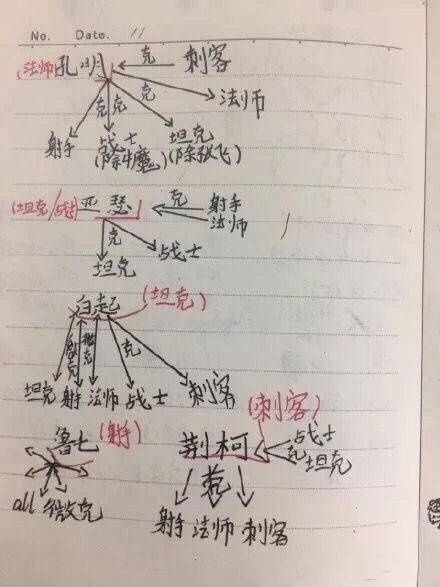 No. Date. 11
(法师)孔明 克 刺客
克 克 克 法师
射手 战士 坦克
(除牛魔) (除张飞)
(坦克/战士) 亚瑟 克 射手
法师
克 战士
坦克
白起 (坦克)
微克 微克 克
坦克 射手 法师 战士 刺客
鲁七 (射手) 荆柯 (刺客)
克 战士
坦克
all 微克 克
射手 法师 刺客